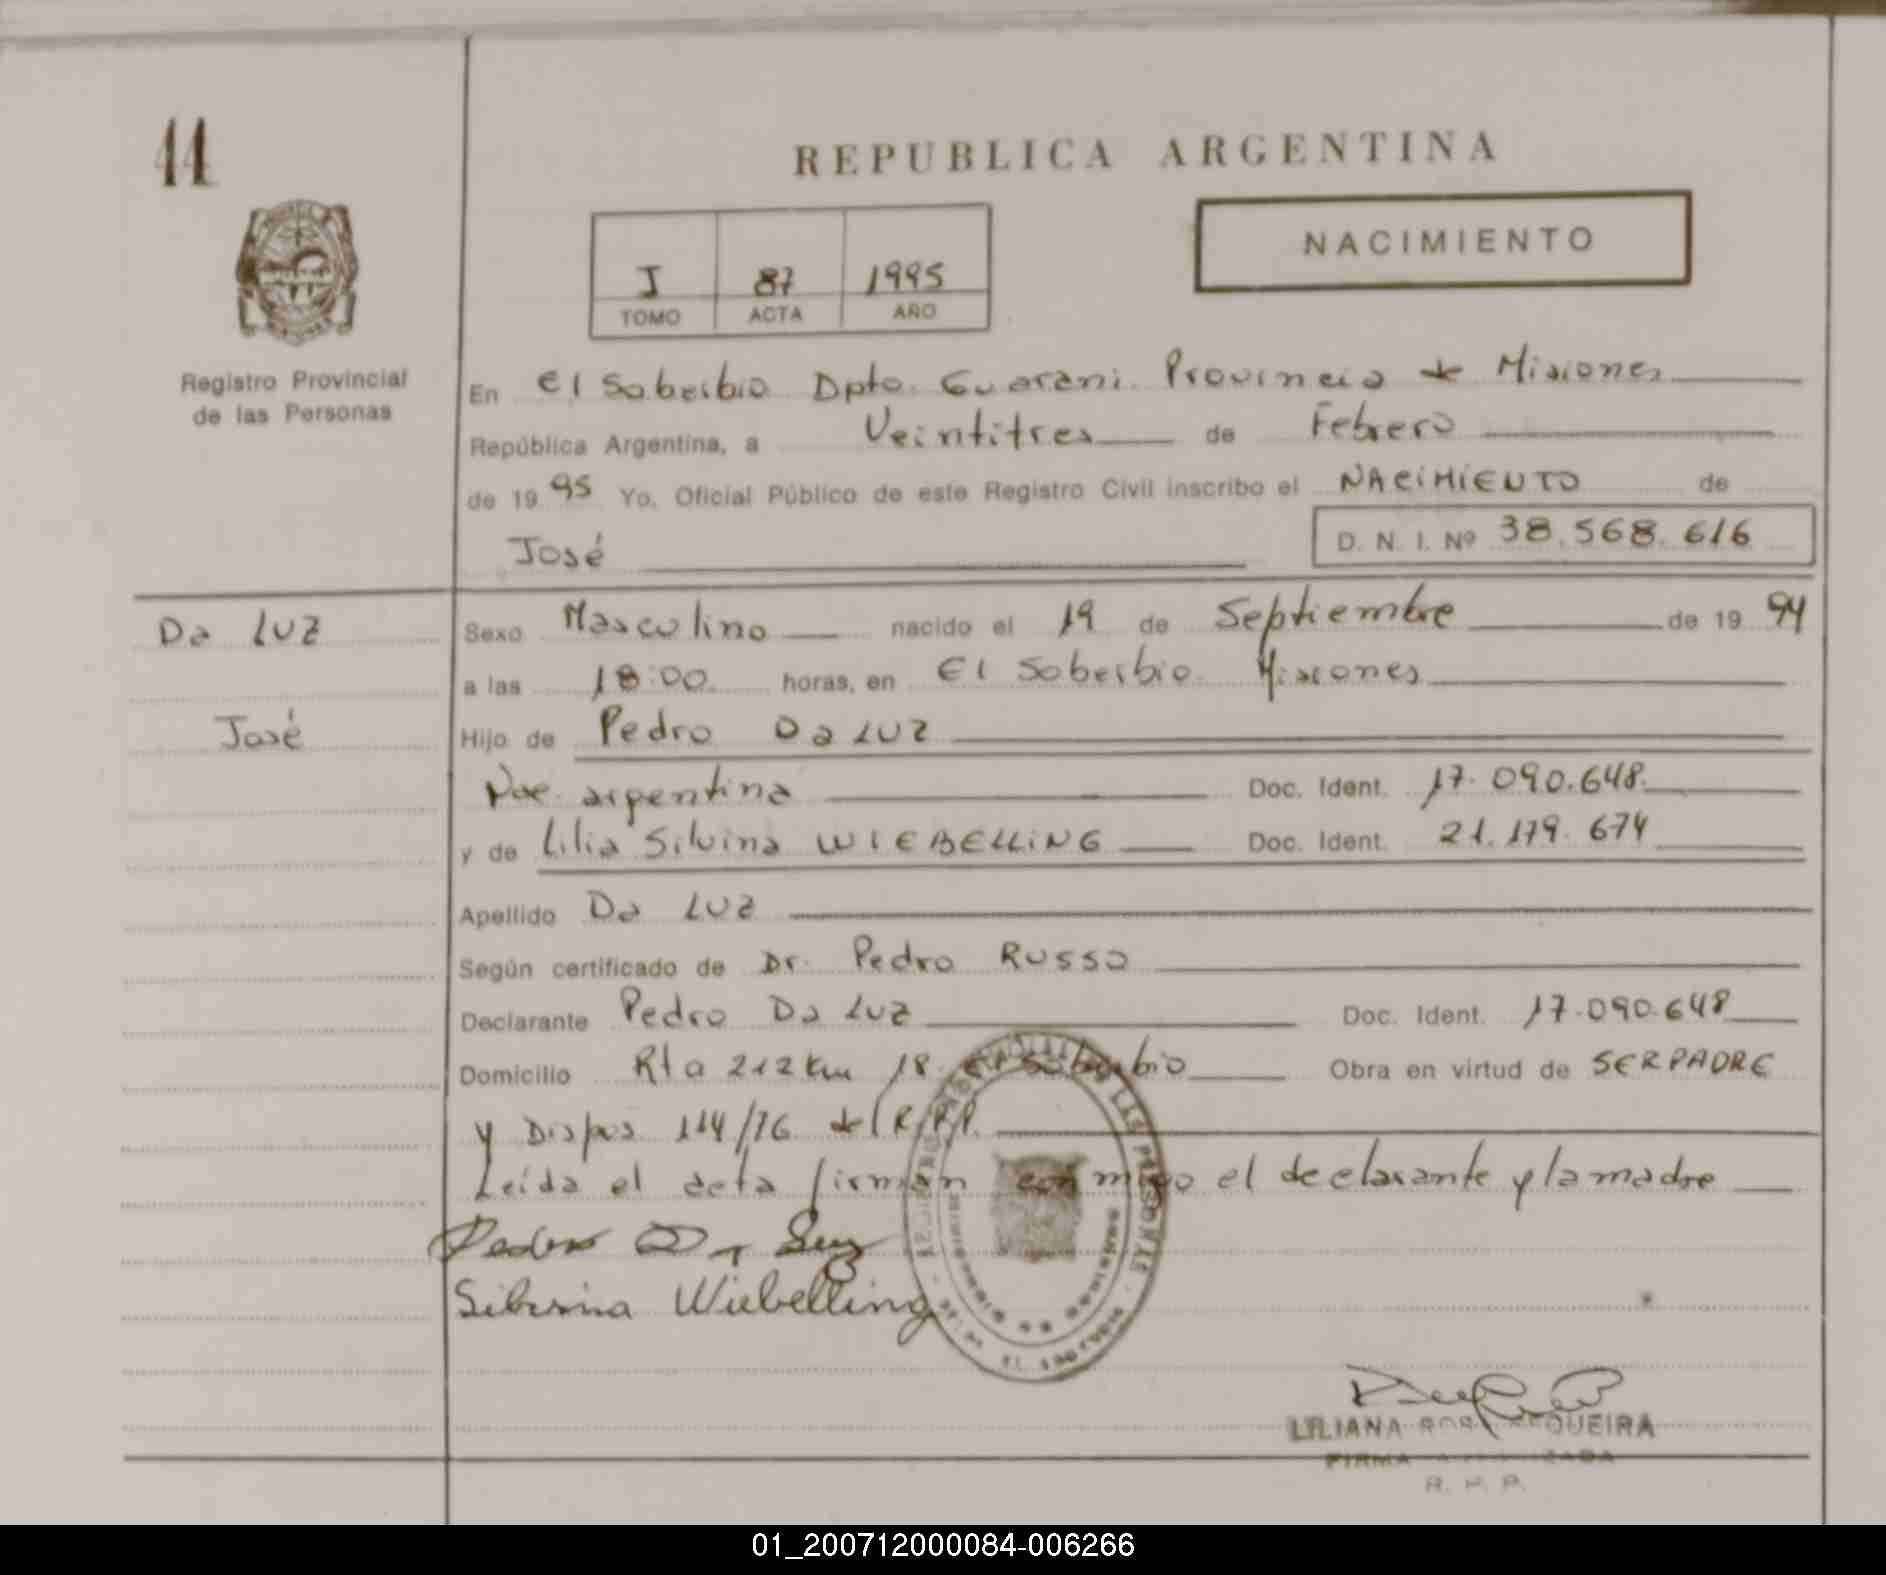 44
REPUBLICA ARGENTINA
NACIMIENTO
I 87 1995
TOMO ACTA AÑO
Registro Provincial
de las Personas
En El Soberbio Dpto. Guarani. Provincia de Misiones
República Argentina, a Veintitres de Febrero
de 19 95 Yo, Oficial Público de este Registro Civil inscribo el NACIMIENTO de
José D. N. I. Nº 38.568.616
Da LUZ
José
Sexo Masculino nacido el 19 de Septiembre de 19 94
a las 18:00 horas, en El Soberbio. Misiones
Hijo de Pedro Da LUZ
Nac. argentina Doc. Ident. 17.090.648.
y de Lilia Silvina WIEBELLING Doc. Ident. 21.179.674
Apellido Da LUZ
Según certificado de Dr. Pedro RUSSO
Declarante Pedro Da Luz Doc. Ident. 17.090.648
Domicilio Rta 212 Km 18. El Soberbio Obra en virtud de SER PADRE
y Dispos 114/76 del R.P.P.
Leída el acta firman conmigo el declarante y la madre
Pedro Da Luz
Silvina Wiebelling
LILIANA
FIRMA
R. P. P.
01_200712000084-006266